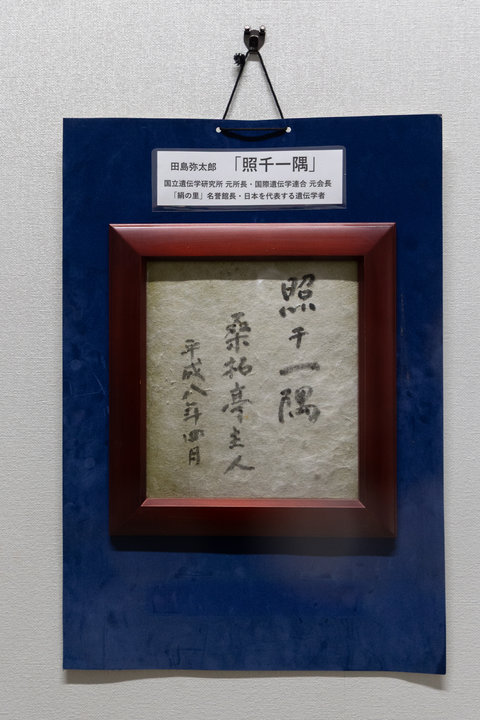 田島弥太郎 「照千一隅」
国立遺伝学研究所 元所長・国際遺伝学連合 元会長
「絹の里」名誉館長・日本を代表する遺伝学者
照千一隅
桑柘亭主人
平成八年四月